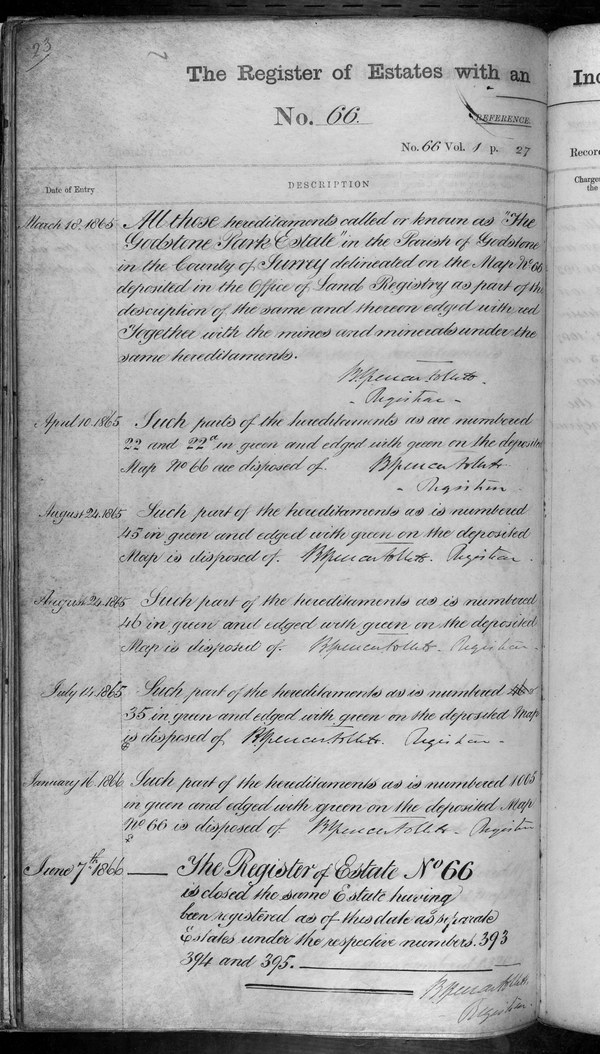 23
The Register of Estates with an
No. 66.
REFERENCE.
No. 66 Vol. 1 p. 27
Date of Entry
DESCRIPTION
March 18. 1865 All those hereditaments called or known as "The
Godstone Park Estate" in the Parish of Godstone
in the County of Surrey delineated on the Map No 66
deposited in the Office of Land Registry as part of the
description of the same and thereon edged with red
Together with the mines and minerals under the
same hereditaments.
B Spencer Follett.
- Registrar -
April 10. 1865 Such parts of the hereditaments as are numbered
22 and 22a in green and edged with green on the deposited
Map No 66 are disposed of. B Spencer Follett
- Registrar.
August 24. 1865 Such part of the hereditaments as is numbered
45 in green and edged with green on the deposited
Map is disposed of. B Spencer Follett. Registrar.
August 24. 1865 Such part of the hereditaments as is numbered
46 in green and edged with green on the deposited
Map is disposed of. B Spencer Follett. Registrar.
July 14. 1865 Such part of the hereditaments as is numbered
35 in green and edged with green on the deposited Map
is disposed of B Spencer Follett. Registrar.
January 16. 1866 Such part of the hereditaments as is numbered 1005
in green and edged with green on the deposited Map
No 66 is disposed of B Spencer Follett. Registrar
June 7th 1866 — The Register of Estate No 66
is closed the same Estate having
been registered as of this date as separate
Estates under the respective numbers. 393
394 and 395.
B Spencer Follett.
Registrar.
Ind
Record
Charges
the